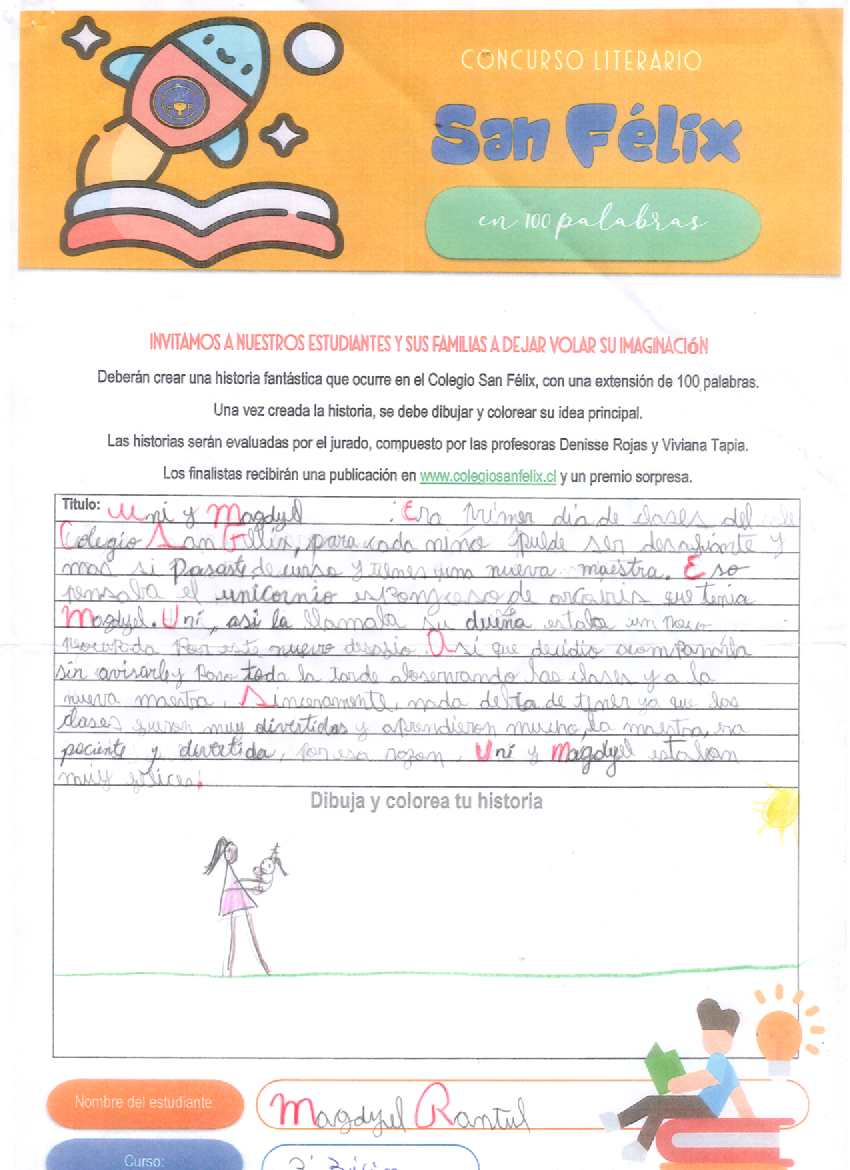 CONCURSO LITERARIO
San Félix
en 100 palabras
INVITAMOS A NUESTROS ESTUDIANTES Y SUS FAMILIAS A DEJAR VOLAR SU IMAGINACIÓN
Deberán crear una historia fantástica que ocurre en el Colegio San Félix, con una extensión de 100 palabras.
Una vez creada la historia, se debe dibujar y colorear su idea principal.
Las historias serán evaluadas por el jurado, compuesto por las profesoras Denisse Rojas y Viviana Tapia.
Los finalistas recibirán una publicación en www.colegiosanfelix.cl y un premio sorpresa.
Titulo: Uni y Magdyel : Era primer dia de clases del
Colegio San Felix, para cada niño puede ser desafiante y
mas si pasaste de curso y tienes una nueva maestra. Eso
pensaba el unicornio esponjoso de arcoiris que tenia
Magdyel. Uni, asi la llamaba su dueña estaba un poco
preocupada por este nuevo desafio. Asi que decidio acompañarla
sin avisarle y paso toda la tarde observando las clases y a la
nueva maestra. Sinceramente nada debia de temer ya que las
clases fueron muy divertidas y aprendieron mucho, la maestra era
paciente y divertida, por esa razon Uni y Magdyel estaban
muy felices.
Dibuja y colorea tu historia
Nombre del estudiante
Magdyel Rantul
Curso:
3° Básico